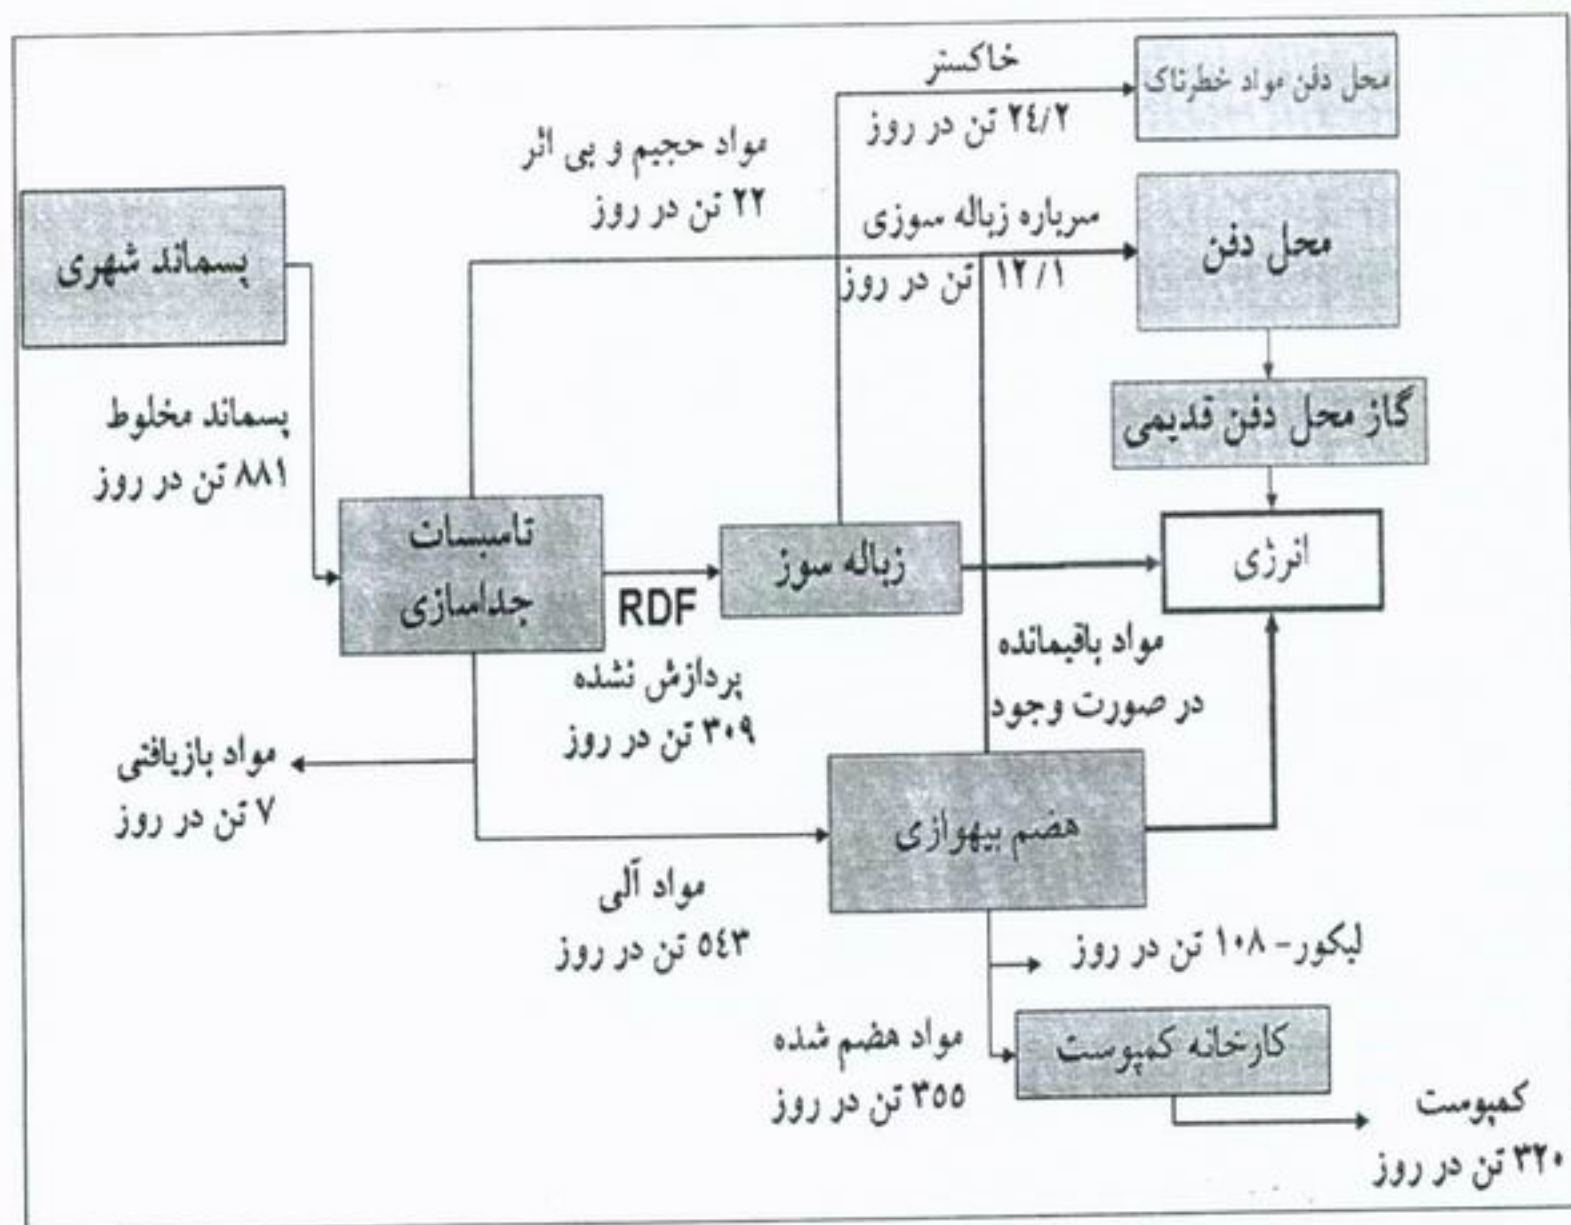 خاکستر
۲٤/۲ تن در روز
محل دفن مواد خطرناک
مواد حجیم و بی اثر
۲۲ تن در روز
سرباره زباله سوزی
۱۲/۱ تن در روز
محل دفن
پسماند شهری
گاز محل دفن قدیمی
پسماند مخلوط
۸۸۱ تن در روز
تاسیسات
جداسازی
زباله سوز
انرژی
RDF
پردازش نشده
۳۰۹ تن در روز
مواد باقیمانده
در صورت وجود
مواد بازیافتی
۷ تن در روز
هضم بیهوازی
مواد آلی
٥٤۳ تن در روز
لیکور- ۱۰۸ تن در روز
مواد هضم شده
۳٥٥ تن در روز
کارخانه کمپوست
کمپوست
۳۲۰ تن در روز